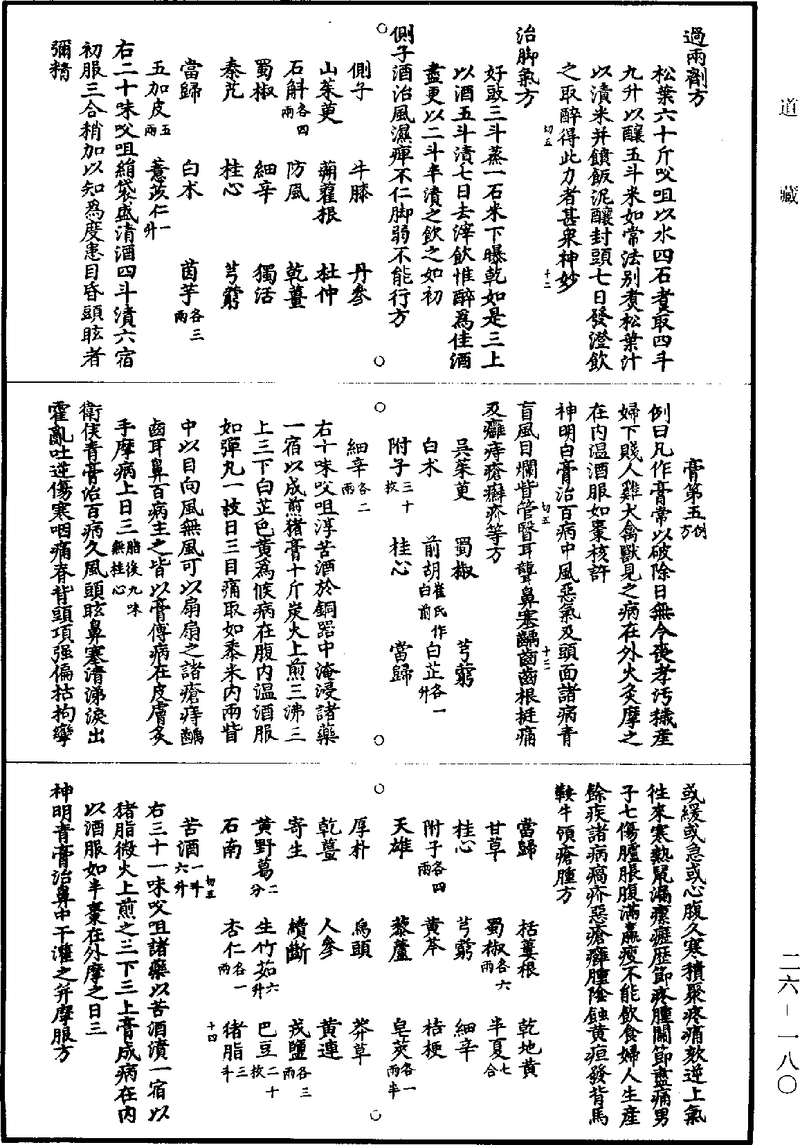 道藏
過兩劑方
松葉六十斤㕮咀以水四石煮取四斗
九升以釀五斗米如常法別煮松葉汁
以漬米并饋飯泥釀封頭七日發澄飲
之取醉得此力者甚衆神妙
切五
十二
治脚氣方
好豉三斗蒸一石米下曝乾如是三上
以酒五斗漬七日去滓飲惟醉爲佳酒
盡更以二斗半漬之飲之如初
側子酒治風濕痺不仁脚弱不能行方
側子 牛膝 丹參
山茱萸 蒴藋根 杜仲
石斛各四兩 防風 乾薑
蜀椒 細辛 獨活
秦艽 桂心 芎藭
當歸 白朮 茵芋各三兩
五加皮五兩 薏苡仁一升
右二十味㕮咀絹袋盛清酒四斗漬六宿
初服三合稍加以知爲度患目昏頭眩者
彌精
膏第五例方
例曰凡作膏常以破除日無令喪孝污穢産
婦下賤人雞犬禽獸見之病在外火灸摩之
在内温酒服如棗核許
神明白膏治百病中風惡氣及頭面諸病青
切五
十三
盲風目爛眥管翳耳聾鼻塞齲齒齒根挺痛
及癰痔瘡癬疥等方
吳茱萸 蜀椒 芎藭
白朮 前胡崔氏作白前 白芷各一升
附子三十枚 桂心 當歸
細辛各二兩
右十味㕮咀淳苦酒於銅器中淹浸諸藥
一宿以成煎猪膏十斤炭火上煎三沸三
上三下白芷色黄爲候病在腹内温酒服
如彈丸一枚日三目痛取如黍米内兩眥
中以目向風無風可以扇扇之諸瘡痔齲
齒耳鼻百病主之皆以膏傅病在皮膚灸
手摩病上日三肘後九味無桂心
衛侯青膏治百病久風頭眩鼻塞清涕淚出
霍亂吐逆傷寒咽痛脊背頭項强偏枯拘攣
或緩或急或心腹久寒積聚疼痛欬逆上氣
往來寒熱鼠漏瘰癧歷節疼腫關節盡痛男
子七傷臚脹腹滿羸瘦不能飲食婦人生産
餘疾諸病瘑疥惡瘡癬腫陰蝕黄疸發背馬
鞍牛領瘡腫方
當歸 栝蔞根 乾地黄
甘草 蜀椒各六兩 半夏七合
桂心 芎藭 細辛
附子各四兩 黄芩 桔梗
天雄 藜蘆 皂莢各一兩半
厚朴 烏頭 莽草
乾薑 人參 黄連
寄生 續斷 戎鹽各三兩
黄野葛二分 生竹茹六升 巴豆二十枚
石南 杏仁各一兩 猪脂三斗
苦酒一斗六升
切五
十四
右三十一味㕮咀諸藥以苦酒漬一宿以
猪脂微火上煎之三下三上膏成病在内
以酒服如半棗在外摩之日三
神明青膏治鼻中干灌之并摩服方
二六－一八〇